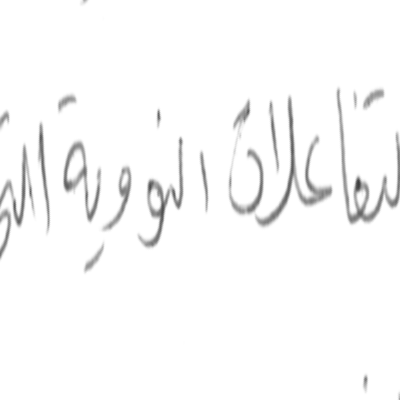 لتفاعلات النووية الت